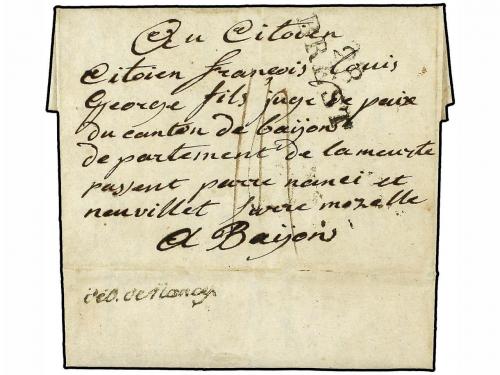 Au Citoien
Citoien francois Louis
George fils juge de paix
du canton de baijon
departement de la meurte
passent parre nanci et
neuvillet surre mozelle
A Baijon
28
BREST
déb. de Nancy